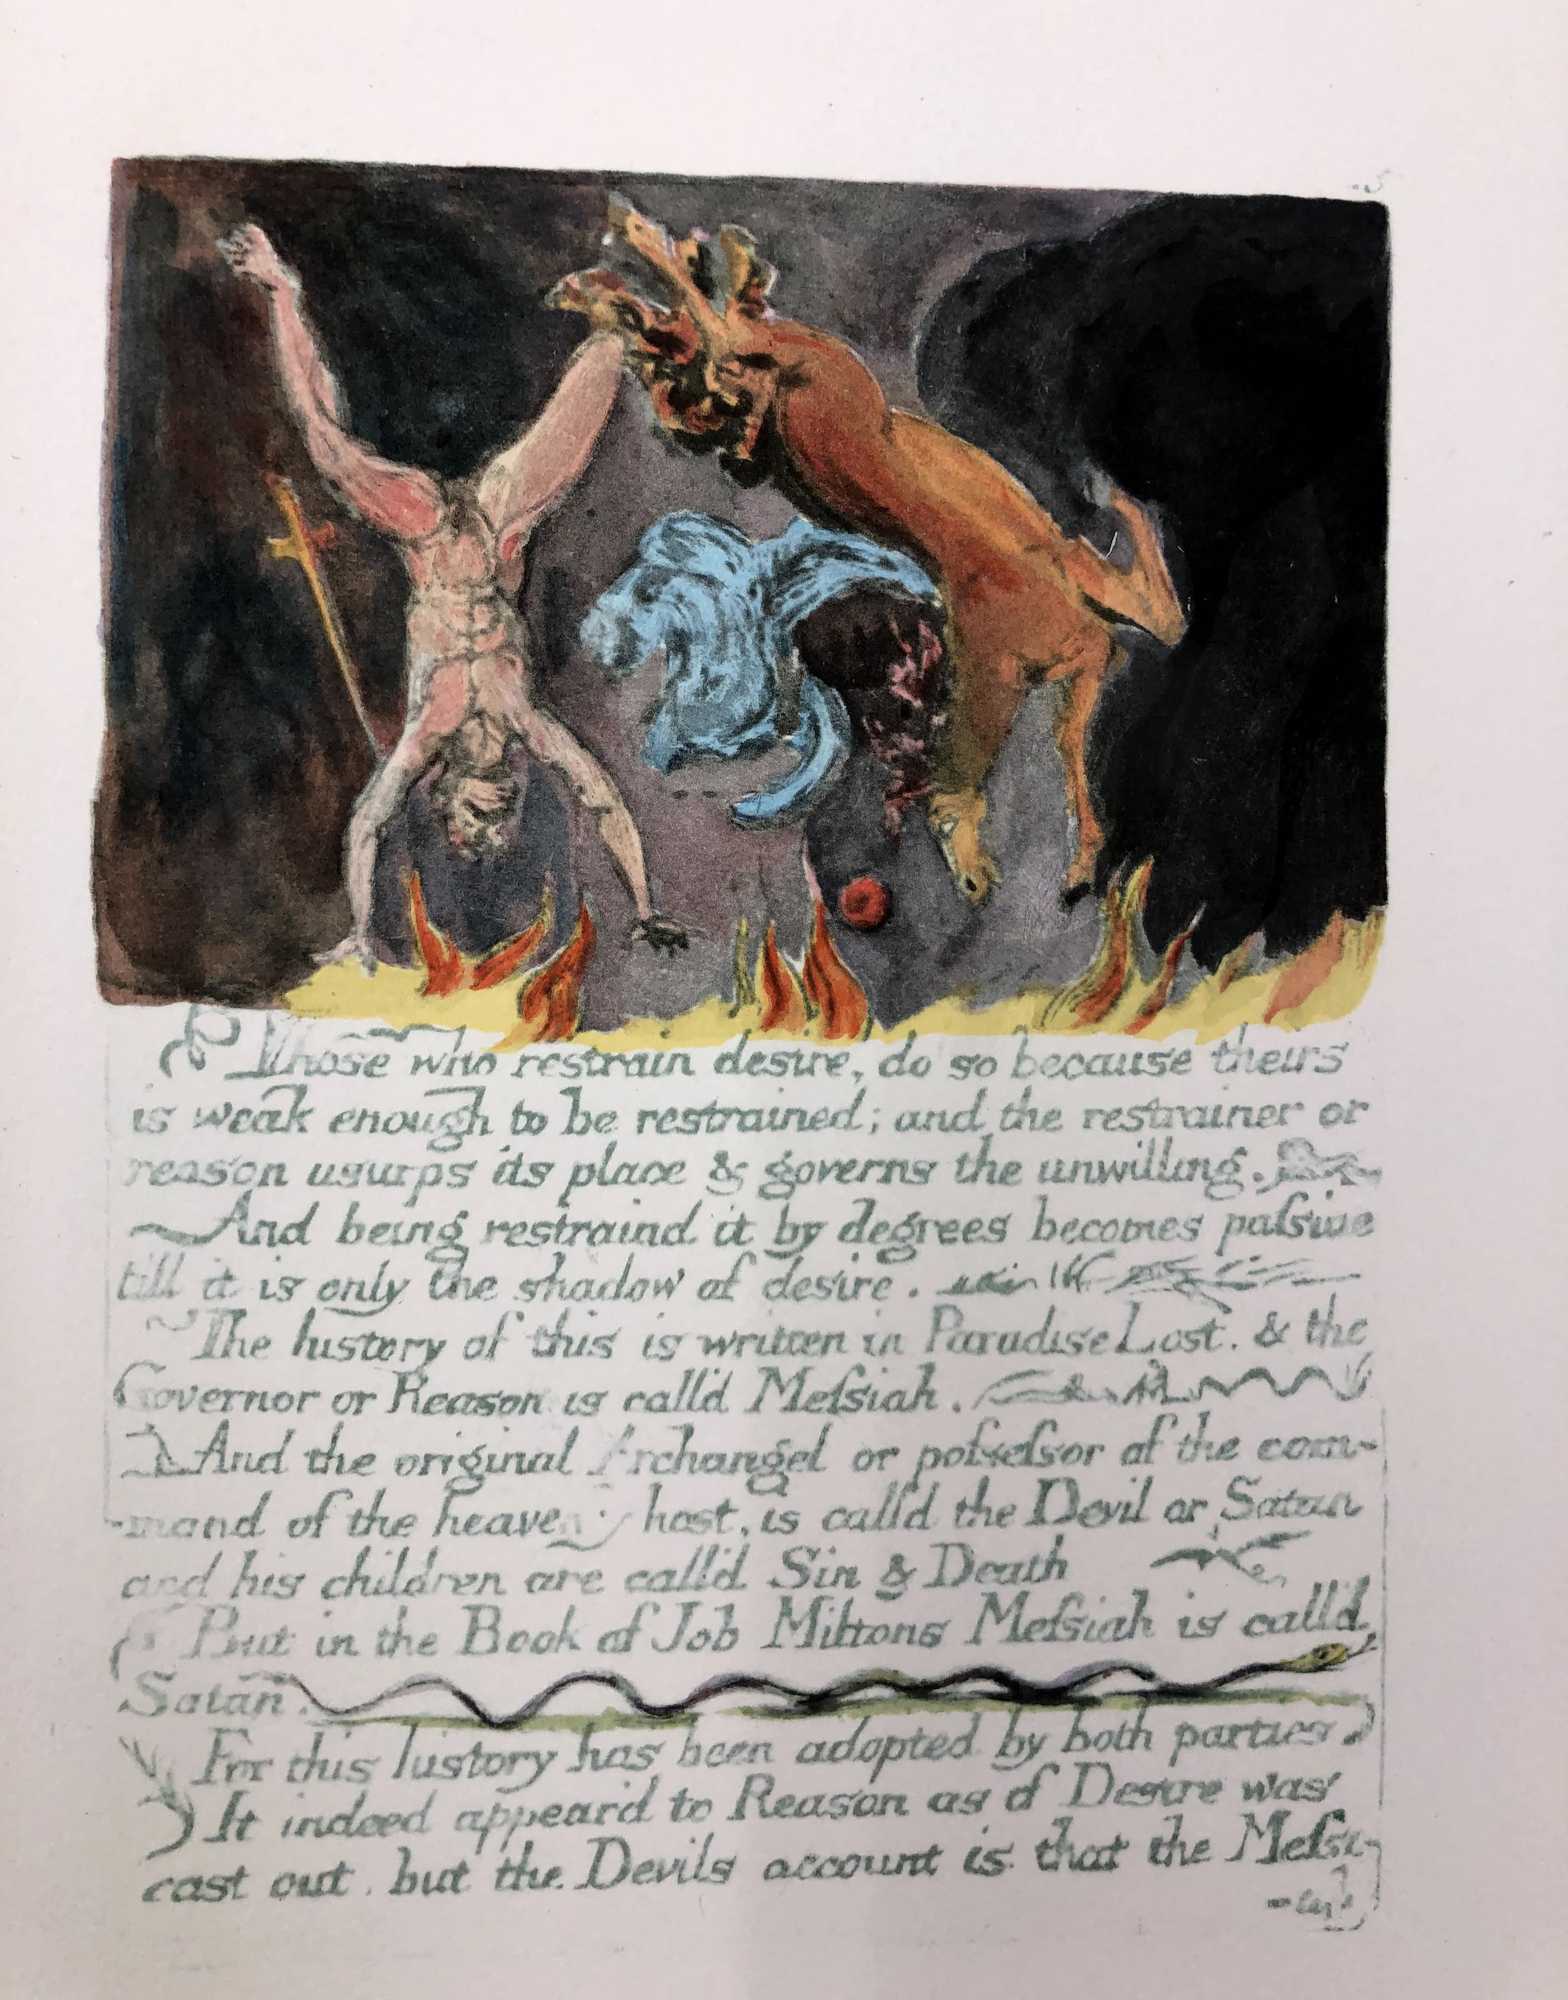 5
Those who restrain desire, do so because theirs
is weak enough to be restrained; and the restrainer or
reason usurps its place & governs the unwilling.
And being restraind it by degrees becomes paſsive
till it is only the shadow of desire.
The history of this is written in Paradise Lost. & the
Governor or Reason is call'd Meſsiah.
And the original Archangel or poſseſsor of the com-
-mand of the heavenly host, is calld the Devil or Satan
and his children are call'd Sin & Death
But in the Book of Job Miltons Meſsiah is call'd
Satan.
For this history has been adopted by both parties
It indeed appear'd to Reason as if Desire was
cast out. but the Devils account is that the Meſsi-
-ah